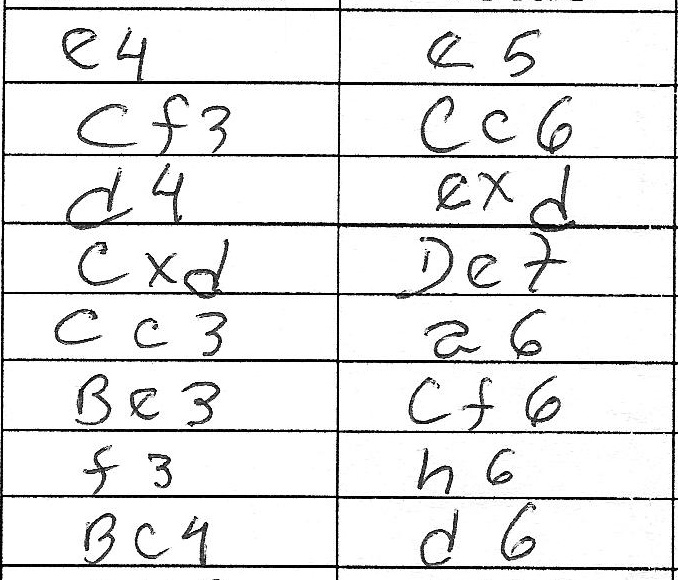 e4 e5
Cf3 Cc6
d4 exd
Cxd De7
Cc3 a6
Be3 Cf6
f3 h6
Bc4 d6